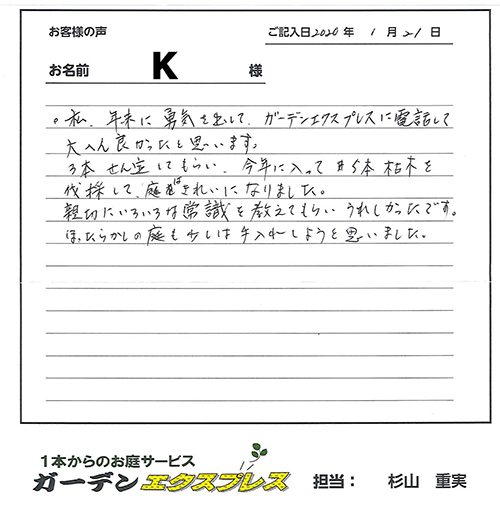 お客様の声
ご記入日2020年 1月21日
お名前 K 様
。私、年末に勇気を出して、ガーデンエクスプレスに電話して
大へん良かったと思います。
3本せん定してもらい、今年に入って 5本枯木を
伐採して、庭がきれいになりました。
親切にいろいろな常識を教えてもらいうれしかったです。
ほったらかしの庭も少しは手入れしようと思いました。
1本からのお庭サービス
ガーデンエクスプレス 担当： 杉山 重実